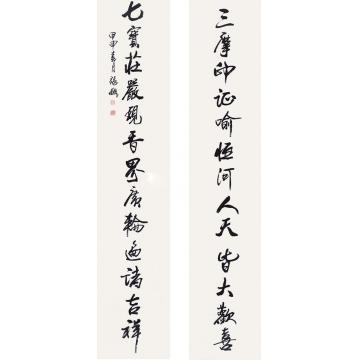 三摩印証喻恒河人天皆大歡喜
七寶莊嚴現香界廣輪遍諸吉祥
甲申春月